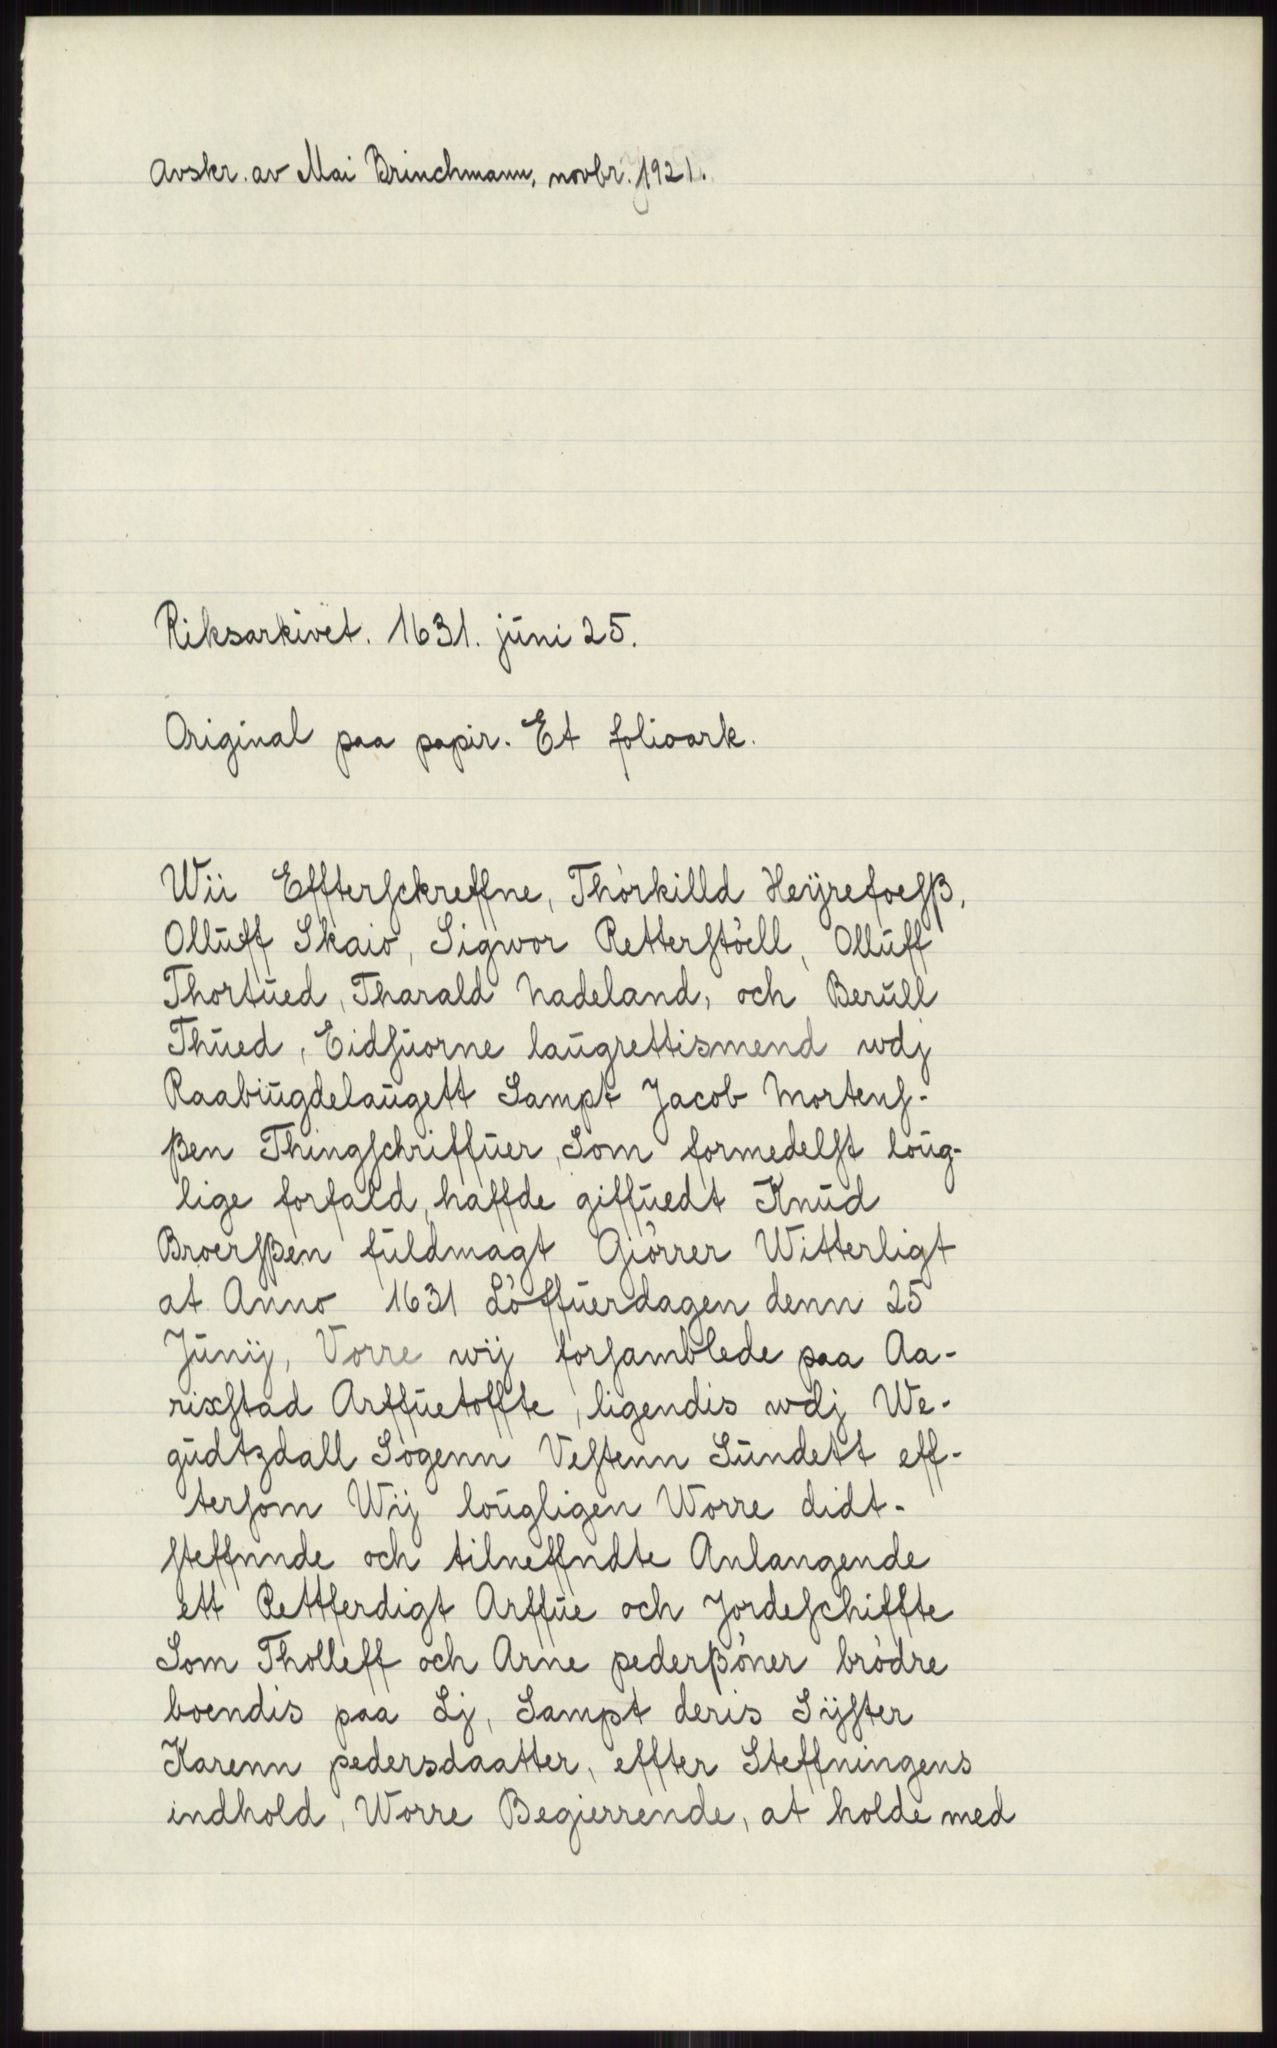 Avskr. av Mai Brinchmann, novbr. 1921.
Riksarkivet. 1631. juni 25.
Original paa papir. Et folioark.
Wii Effterſckreffne, Thórkilld Heÿrefoeſβ,
Ollūff Skaiò, Sigwor Retterſtöell, Ollūff
Thortūed, Tharald Nadeland, och Berūll
Thūed, Eidſūorne laūgrettismend wdj
Raabiūgdelaūgett Sampt Jacob Mortenſ-
βen Thingſchriffūer, Som formedelſt loūg-
lige forfald, haffde giffūedt Knūd
Broerſβen fūldmagt Giörrer Witterligt
at Anno 1631 Löffūerdagen denn 25
Jūnij, Vorre wij forſamblede paa Aa-
rixſtad Arffūetoffte, ligendis wdj We-
gūdtzdall Sogenn Veſtenn Sūndett eff-
terſom Wij loūgligen Worre didt-
ſteffnnde och tilneffndte Anlangende
ett Rettferdigt Arffūe och Jordeſchiffte
Som Tholleff och Arne pederβöner brödre
boendis paa Lj, Sampt deris Sÿſter
Karenn pedersdaatter, effter Steffningens
indhold, Worre Begierrende, at holde med